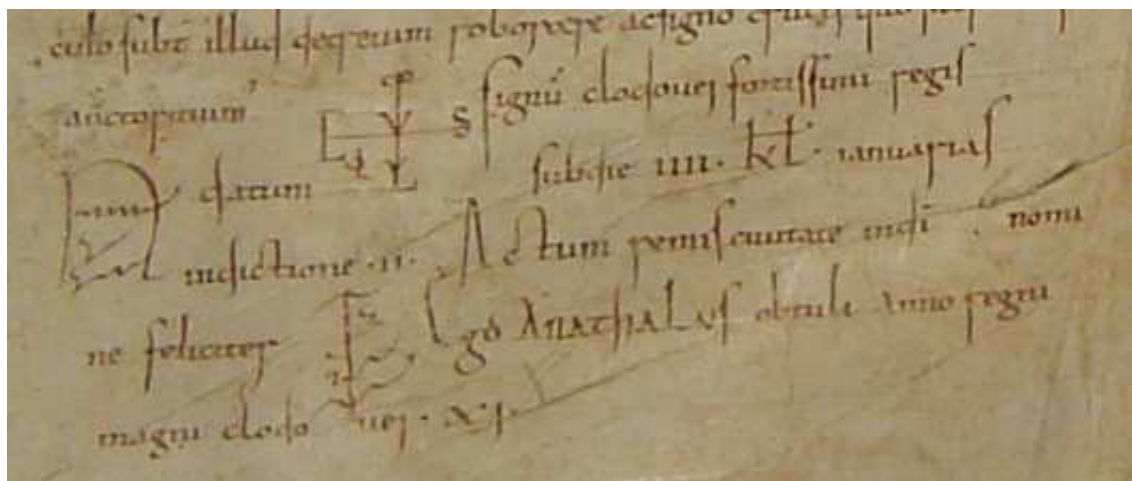 culo subt illud decretum roborare ac signo crucis quo
auctoritatum signū clodouei fortissimi regis
datum sub die IIII · kł · ianuarias
indictione · II · Actum remis ciuitate in dī nomi
ne feliciter Ego ANAThALUS obtuli Anno regni
magni clodo uei · XI ·